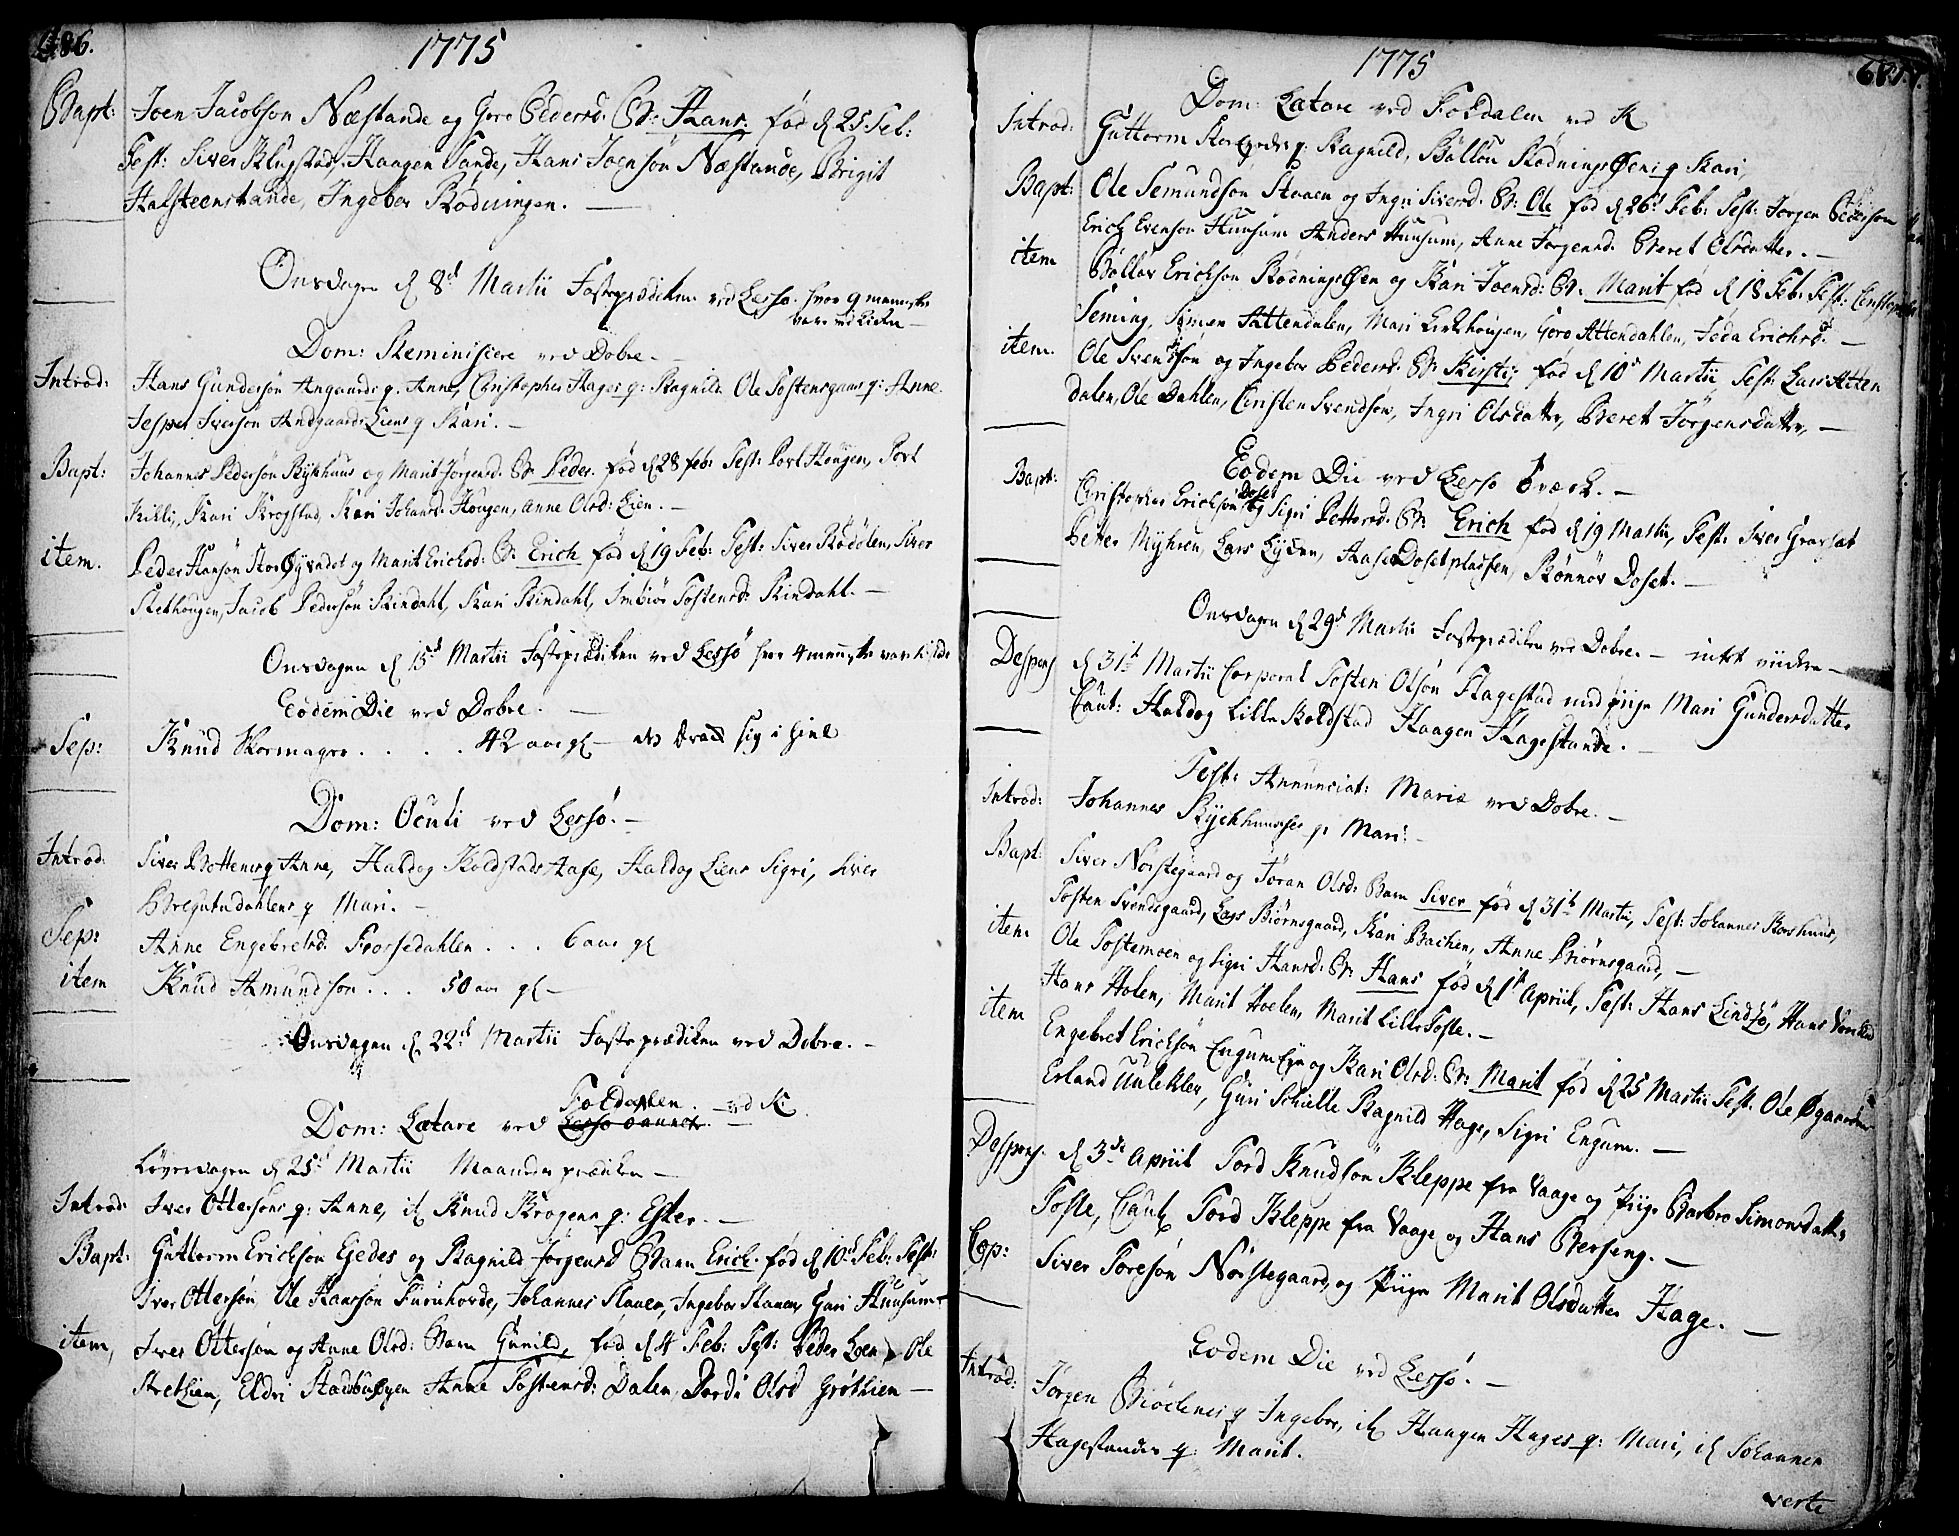 486.
1775
Bapt: Joen Jacobson Næstande og Goro Pedersd. B: Hans. fød d 25 Feb:
Test: Siver Klugstad, Haagen Sande, Hans Joensön Næstande, Brigit
Halsteenstande, Ingebor Rødningen. —
Onsdagen d 8de Martii Fasteprædiken ved Lessø. hvor 9 menniske
vare ved Kirken —
Dom: Reminiscere ved Dobre. —
Introd: Hans Gundersön Angaards q. Anne, Christopher Hages q: Ragnild. Ole Tostensgaars q: Anne
Jesper Iversön Andgaards Liens q Kari. —
Bapt: Johannes Pedersön Rykhuus og Marit Jörgensd: B: Peder. fød d 28 feb: Test: Povl Hougen, Povl
Kikli, Kari Krogstad, Kari Johansd: Hougen, Anne Olsd: Lien. —
item. Peder Hansön Storøyvadet og Marit Erichsd: B: Erich fød d 19 Feb: Test: Siver Rødølen, Siver
Stethougen, Jacob Pedersön Rindahl, Kari Rindahl, Imbiör Tostensd: Rindahl. —
Onsdagen d 15de Martii Fasteprædiken ved Lessø hvor 4 menniske var tilstede
Eodem Die ved Dobre. —
Sep: Knud Skomager . . . . 42 aar gl —
Dom: Oculi ved Lessø. —
Introd: Siver Bottens q Anne, Haldog Koldstads Aase, Haldog Liens Sigri, Siver
Bregutudahlens q Mari. —
Sep: Anne Engebretsd. Frossedahlen . . . 6 aar gl
item Knud Amundson . . . 50 aar gl —
Onsdagen d 22de Martii Fasteprædiken ved Dobre. —
Foldalen — ved K:
Dom: Lætare ved Lessø annex.
Løverdagen d 25de Martii Maaneds prædiken —
Introd: Iver Ottersöns q: Anne, it Knud Krogens q: Ester. —
Bapt: Guttorm Erickson Gjedes og Ragnild Jorgensd Barn Erich. fød d 10de Feb: Test:
Iver Ottersön, Ole Hansson Furuhovde, Johannes Staaen, Ingebor Staaen, Guri Huusum —
item, Iver Ottersön og Anne Olsd: Barn Gunild, fød d 4 Feb: Test: Peder Loen, Ole
Strethien, Eldri Stadsbuøyen Anne Tostensd: Dalen, Dordi Olsd Grøthien —
687.
1775
Dom: Lætare ved Foldalen ved K
Introd: Guttorm q: Ragnild, Böllöu Rødnings Øens q Kari,
Bapt: Ole Semundsön Staaen og Ingri Siversd. B: Ole fød d 26de Feb: Test: Jorgen Pederson
Erich Evenson Huusum Anders Huusum, Anne Jörgensd. Beret Olsdatter. —
item Böllöv Erickson RødningsØen og Kari Joensd: B: Marit fød d 18 Feb: Test: Christopher
Seming, Simen Attendalen, Mari Kirkhougen, Goro Attendahlen, Jøda Erichsd. —
item. Ole Svendsön og Ingebor Pedersd. B: Kirsti, fød d 10de Martii Test: Lars Atten
dalen, Ole Dahlen, Christen Svendsön, Ingri Olsdatter, Beret Jörgensdatter, —
Eodem Die ved Lessø værck. —
Bapt: Christopher Erickson Doset og Sigri Pettersd. B: Erich fød d 19 Martii, Test: Iver Gravsat
Petter Myhren, Lars Lyden, Aase Dosetpladsen, Rönnöv Doset. —
Onsdagen d 29de Martii Fasteprædiken ved Dobre. — intet videre —
Despens. d 31te Martii Corporal Tosten Olsön Hagestad med pige Mari Gundersdatter
Caut: Haldog Lille Koldstad Haagen Hagestande. —
Fest: Annunciat: Mariæ ved Dobre. —
Introd: Johannes Ryckhuuses q Mari. —
Bapt: Siver Norstegaard og Joran Olsd: Barn Siver fød d 31te Martii, Test: Johannes Korshuus,
Tosten Svendsgaard, Lars Biørnsgaard, Kari Backen, Anne Biørnsgaard, —
item Ole Tostemoen og Sigri Hansd: B: Hans fød d 1te April, Test: Hans Lindsø, Hans
Hans Holen, Marit Hoelen, Marit Lille Tofte. —
item Engebret Ericksön Engum Eye og Kari Olsd: B: Marit fød d 25 Martii Test: Ole Øgaarden
Erland Uulekler, Guri Schielle Ragnild Hage, Sigri Engum. —
Despens. d 3de April Tord Knudsön Kleppe fra Vaage og Pige Barbro Simonsdatter
Tofte, Caut Tord Kleppe fra Vaage og Hans Berseng. —
Cop: Siver Toresön Nørstegaard, og Pige Marit Olsdatter Hage. —
Eodem Die ved Lessø. —
Introd: Jørgen Biöckenes q Ingebor, it Haagen Hages q: Mari, it Johannes
Hagestandes q: Marit.
verte